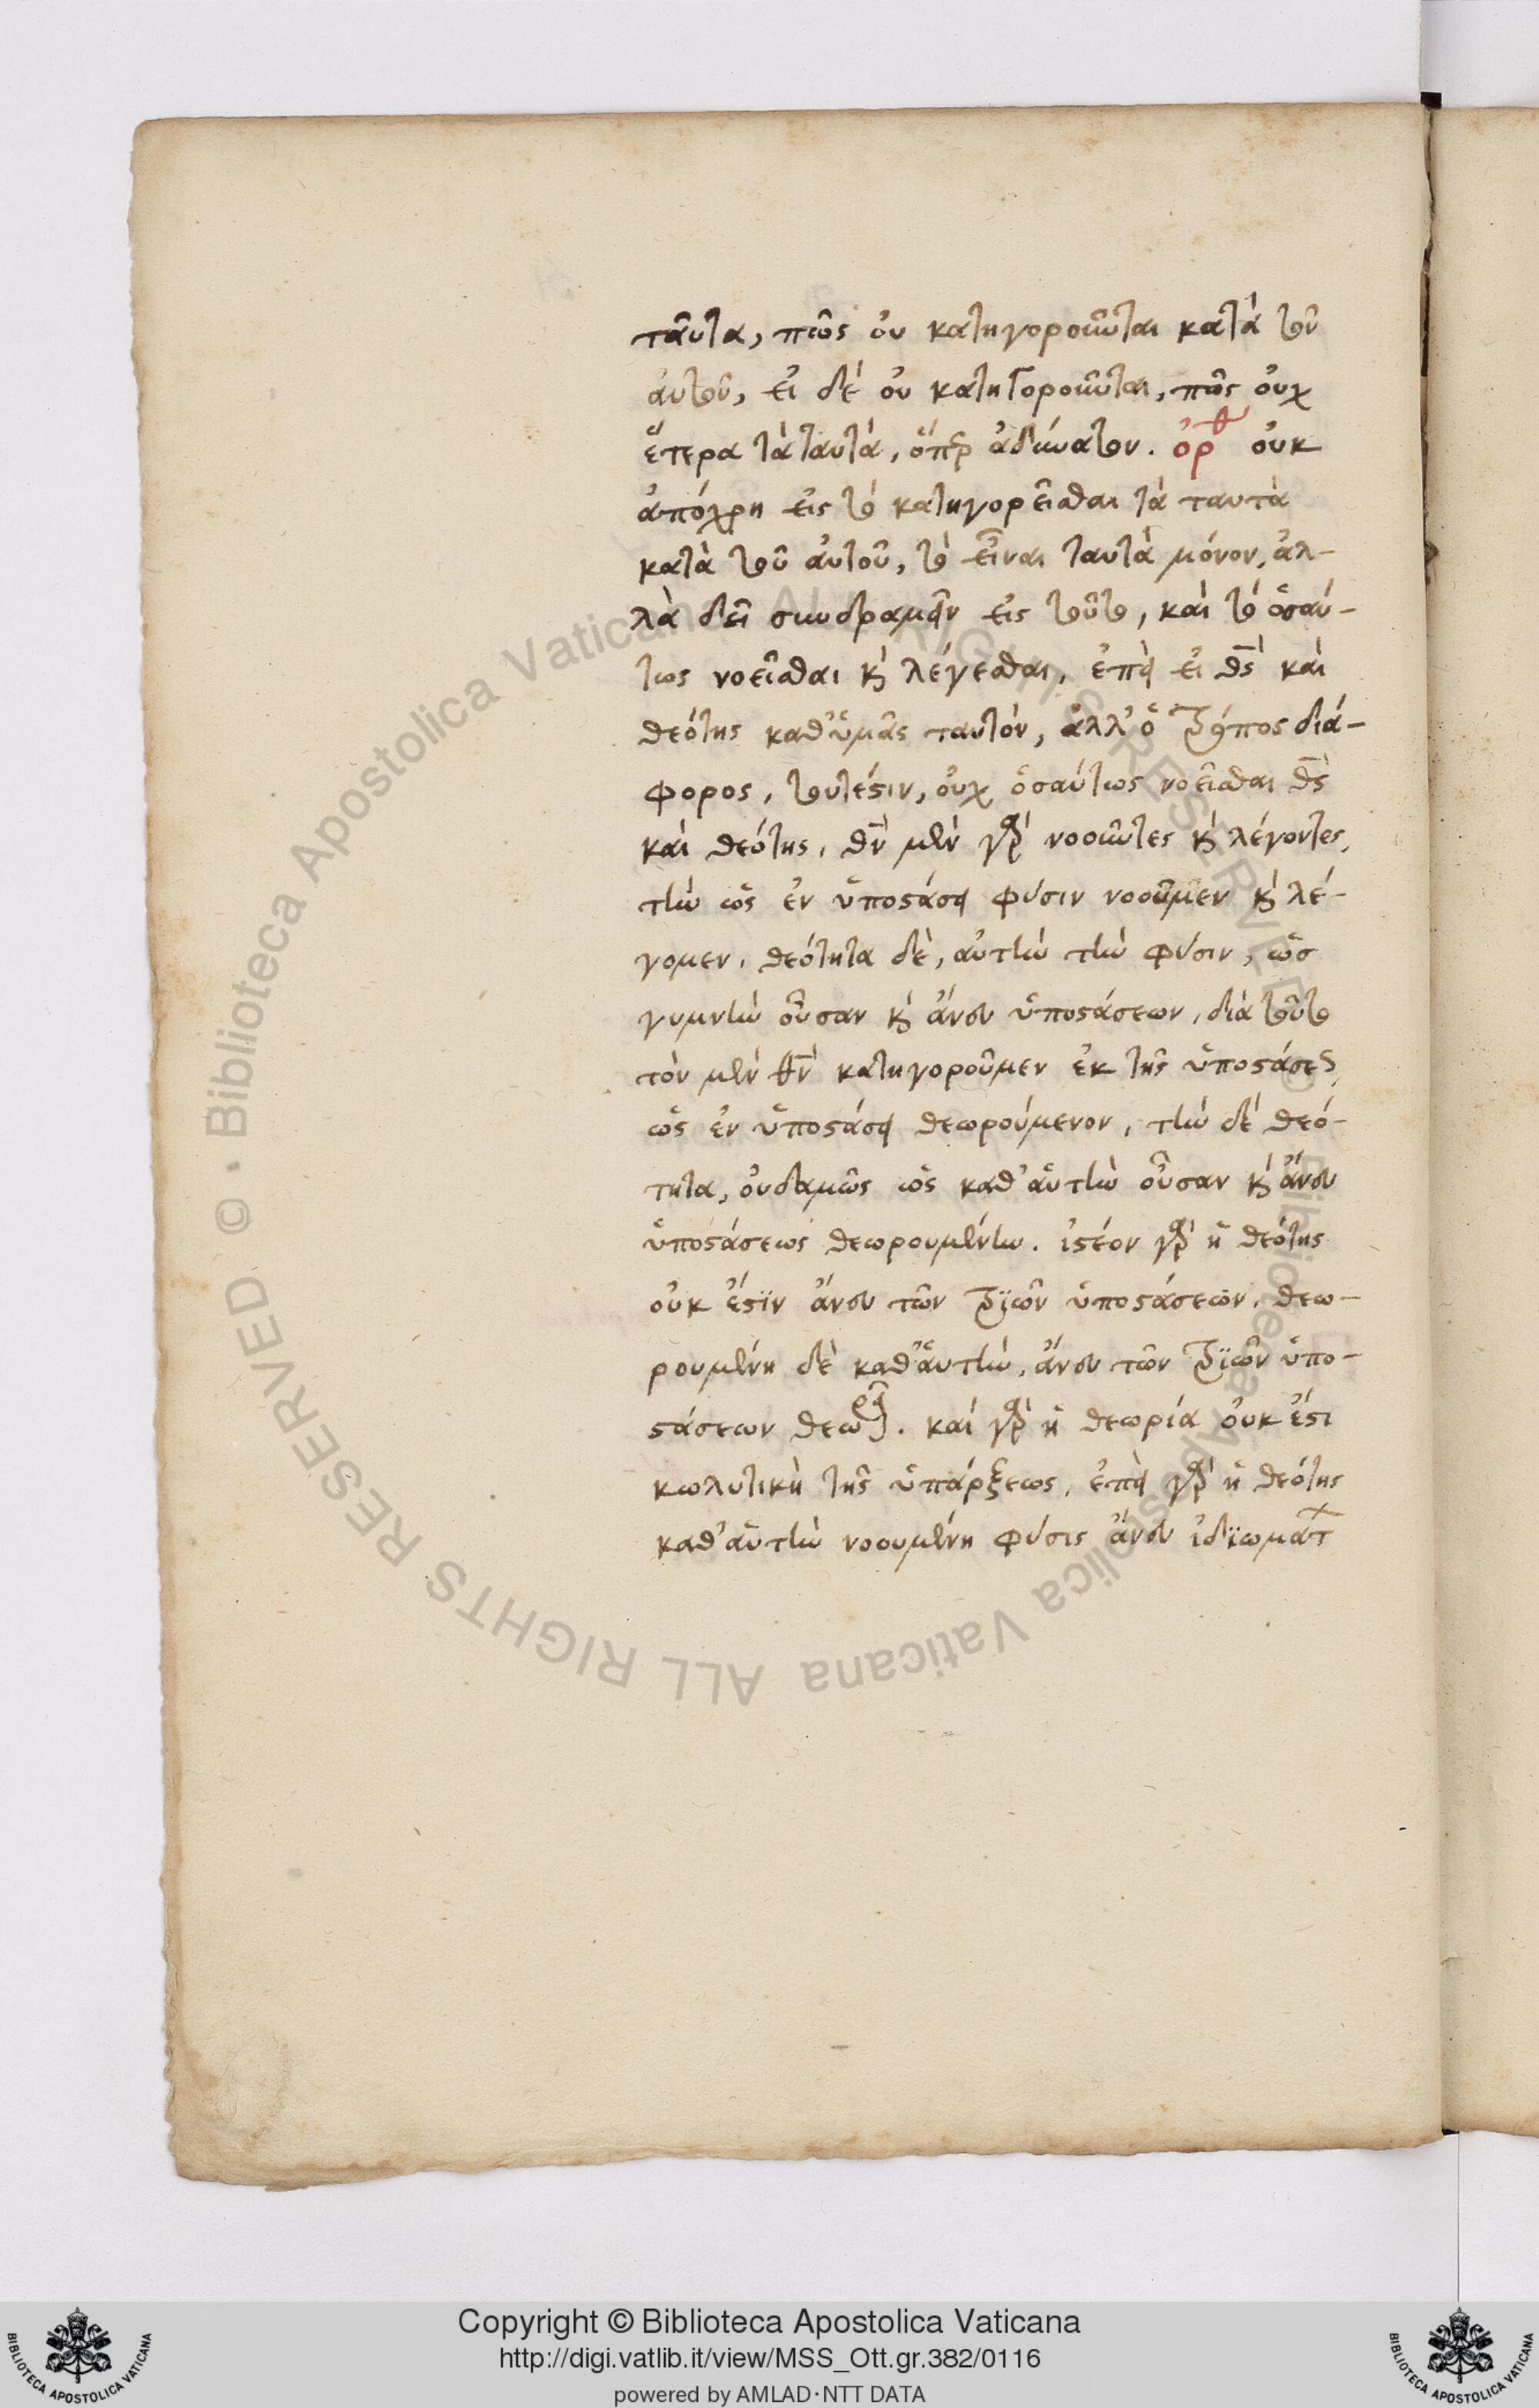 ταῦτα, πῶς οὐ κατηγοροῦνται κατὰ τοῦ
αὐτοῦ, εἰ δὲ οὐ κατηγοροῦνται, πῶς οὐχ
ἕτερα τὰ ταυτὰ, ὅπερ ἀδύνατον. ὀρθ οὐκ
ἀπόχρη εἰς τὸ κατηγορεῖσθαι τὰ ταυτὰ
κατὰ τοῦ αὐτοῦ, τὸ εἶναι ταυτὰ μόνον, ἀλ-
λὰ δεῖ συνδραμεῖν εἰς τοῦτο, καὶ τὸ ὁσαύ-
τως νοεῖσθαι κ λέγεσθαι, ἐπεὶ εἰ θς καὶ
θεότης καθ' ὑμᾶς ταυτόν, ἀλλ' ὁ τρόπος διά-
φορος, τουτέστιν, οὐχ ὁσαύτως νοεῖσθαι θς
καὶ θεότης, θν μὲν γὰρ νοοῦντες κ λέγοντες,
τὴν ὡς ἐν ὑποστάσει φύσιν νοοῦμεν κ λέ-
γομεν, θεότητα δὲ, αὐτὴν τὴν φύσιν, ὡς
γυμνὴν οὖσαν κ ἄνευ ὑποστάσεων, διὰ τοῦτο
τὸν μὲν θν κατηγοροῦμεν ἐκ τῆς ὑποστάσεως,
ὡς ἐν ὑποστάσει θεωρούμενον, τὴν δὲ θεό-
τητα, οὐδαμῶς ὡς καθ' αὑτὴν οὖσαν κ ἄνευ
ὑποστάσεως θεωρουμένην. ἰστέον γὰρ ἡ θεότης
οὐκ ἔστιν ἄνευ τῶν τριῶν ὑποστάσεων, θεω-
ρουμένη δὲ καθ' αὑτὴν, ἄνευ τῶν τριῶν ὑπο-
στάσεων θεωρεῖται. καὶ γὰρ ἡ θεωρία οὐκ ἔστι
κωλυτικὴ τῆς ὑπάρξεως, ἐπεὶ γὰρ ἡ θεότης
καθ' αὑτὴν νοουμένη φύσις ἄνευ ἰδιωμάτ
Copyright © Biblioteca Apostolica Vaticana
http://digi.vatlib.it/view/MSS_Ott.gr.382/0116
powered by AMLAD·NTT DATA
BIBLIOTECA APOSTOLICA VATICANA
BIBLIOTECA APOSTOLICA VATICANA
© · Biblioteca Apostolica Vaticana ALL RIGHTS RESERVED
© · Biblioteca Apostolica Vaticana ALL RIGHTS RESERVED